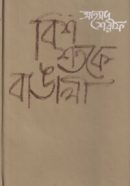 আহমদ
শরীফ
বিশ
শতকে
বাঙালী